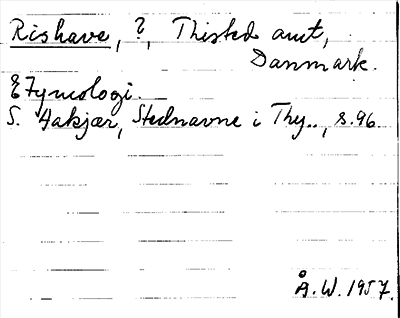 Rishave, ?, Thisted amt,
Danmark.
Etymologi.
S. Aakjær, Stednavne i Thy.., s.96.
Å.W. 1957.